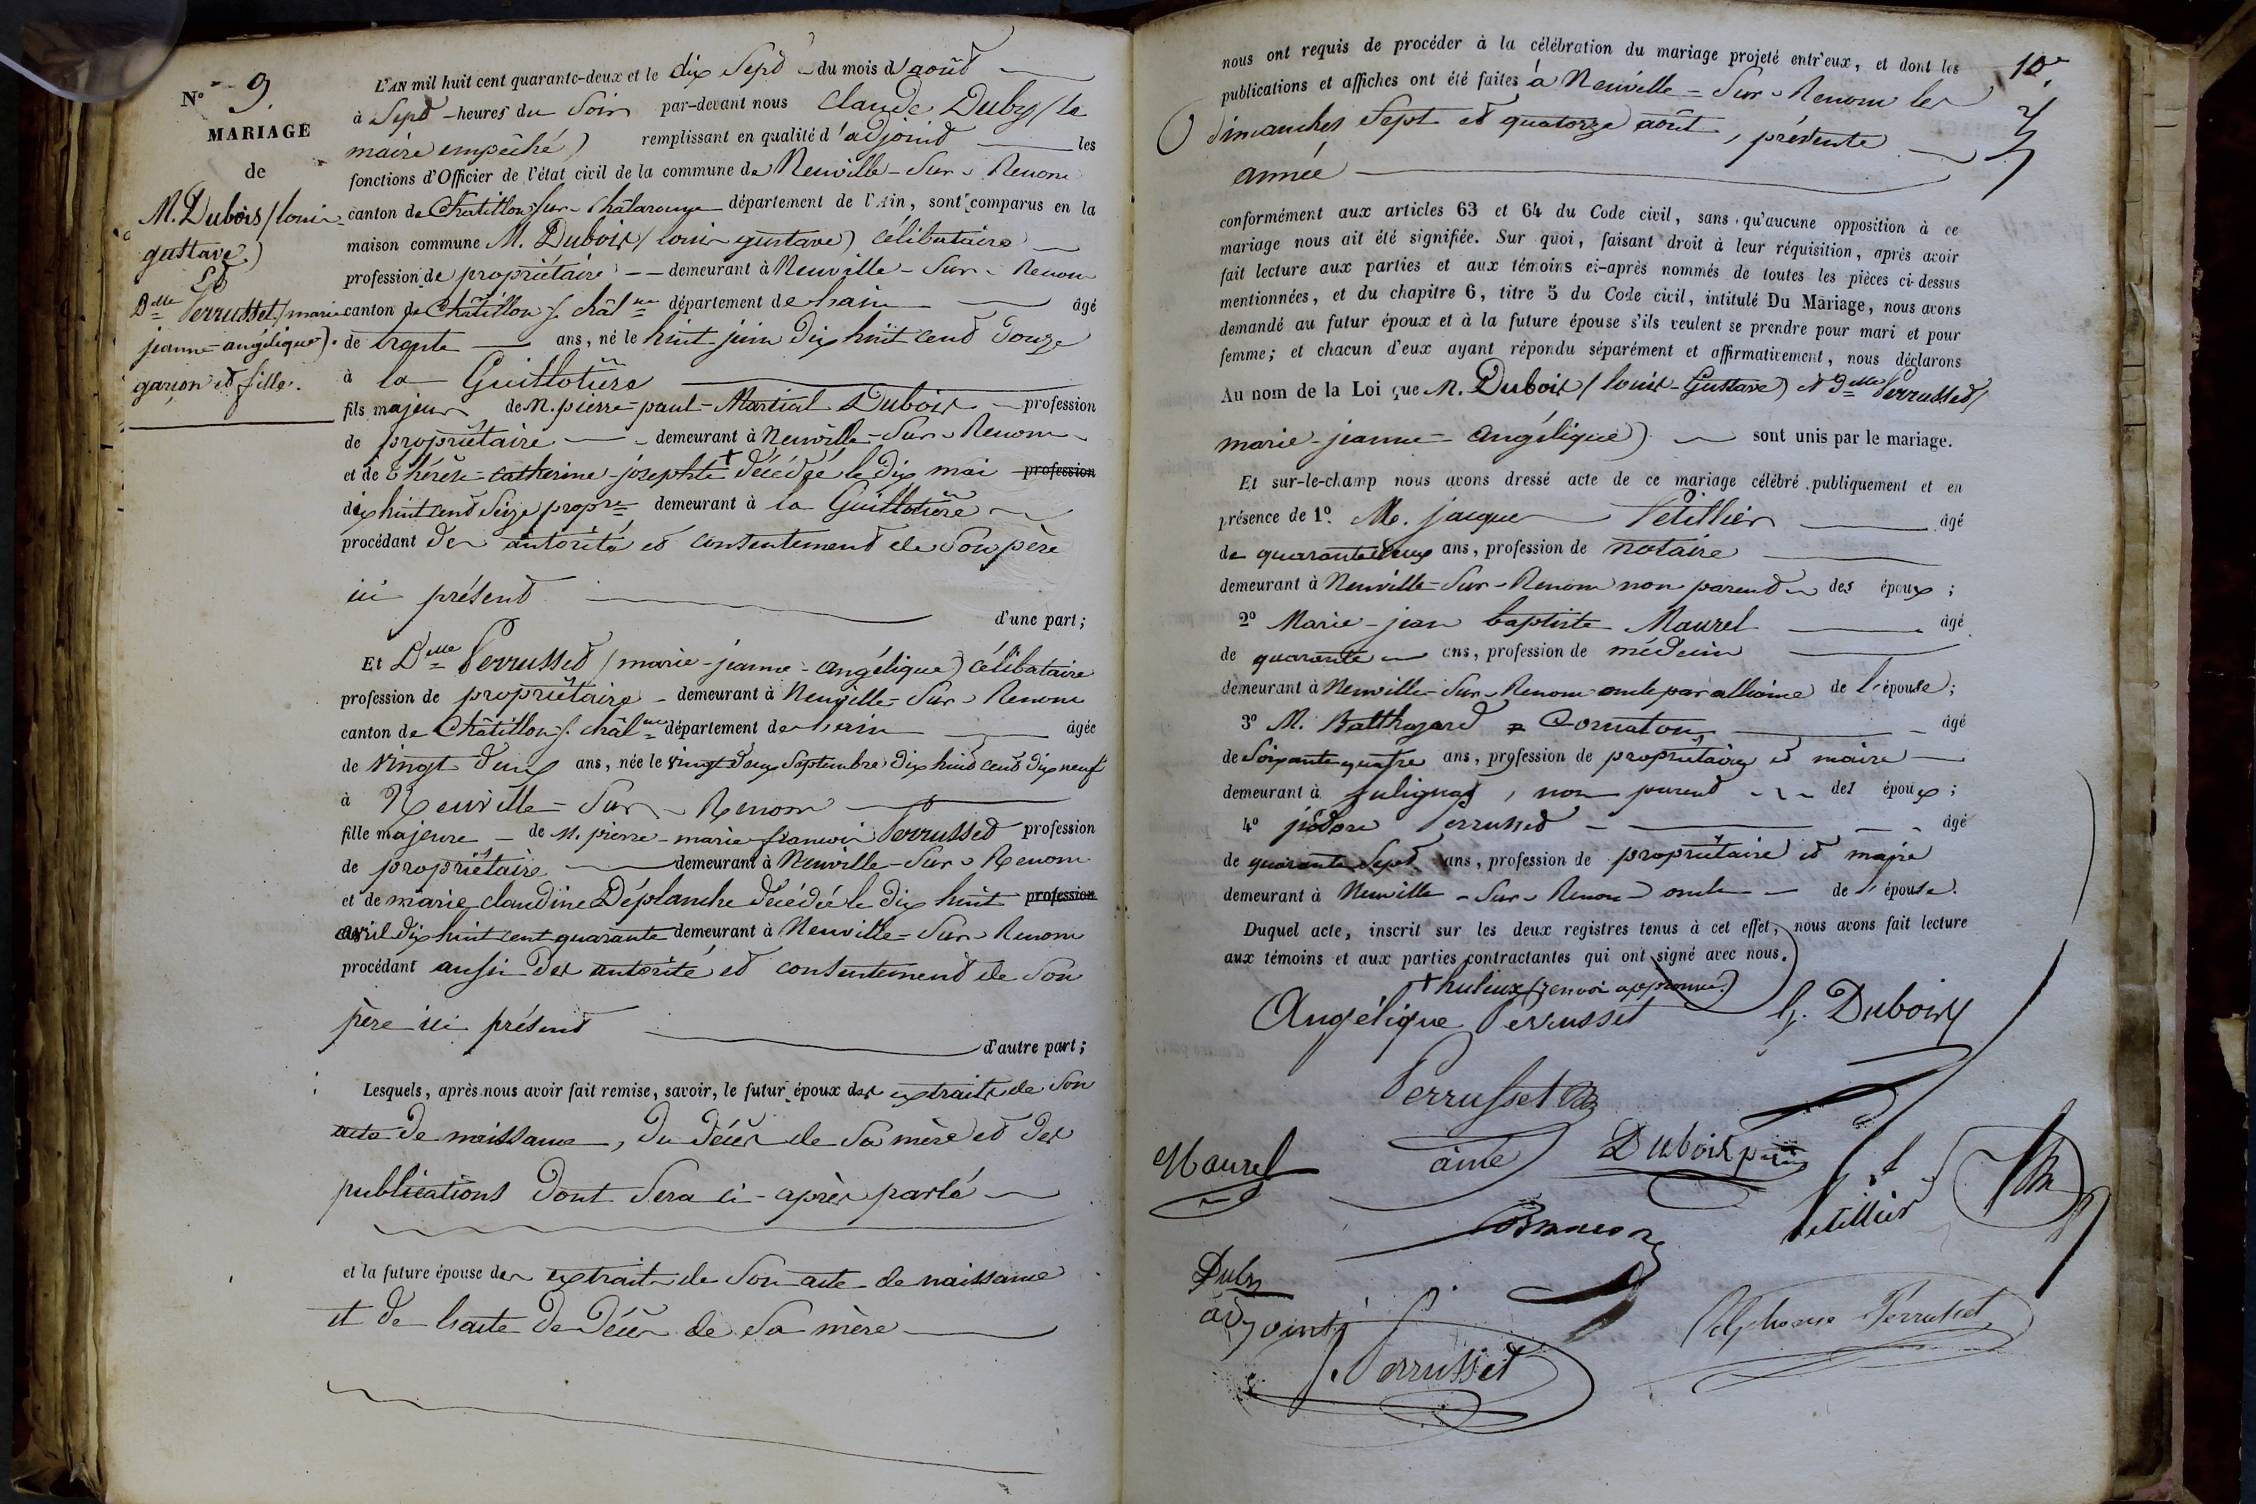 N.° 9.
MARIAGE
de
M. Dubois (louis
gustave)
Et
D.elle Perrusset (marie
jeanne-angélique).
garçon et fille.
L'AN mil huit cent quarante-deux et le dix Sept du mois d'août
à Sept heures du Soir par-devant nous Claude Duby (le
maire empêché) remplissant en qualité d'adjoint les
fonctions d'Officier de l'état civil de la commune de Neuville-Sur-Renom
canton de Châtillon-sur-Chalaronne département de l'Ain, sont comparus en la
maison commune M. Dubois (louis gustave) célibataire
profession de propriétaire demeurant à Neuville-Sur-Renom
canton de Châtillon s. châl.ne département de lain âgé
de trente ans, né le huit juin dix huit cent douze
à la Guillotière
fils majeur de M. pierre-paul-Martial Dubois profession
de propriétaire demeurant à Neuville-Sur-Renom
et de thérèse-catherine-josephte + décédée le dix mai profession
dix huit cent Seize prop.re demeurant à la Guillotière
procédant des autorité et consentement de Son père
ici présent
d'une part;
Et D.elle Perrusset (marie-jeanne-angélique) célibataire
profession de propriétaire demeurant à Neuville-Sur-Renom
canton de Châtillon s. châl.ne département de lain âgée
de vingt deux ans, née le vingt deux Septembre dix huit cent dix neuf
à Neuville-Sur-Renom
fille majeure de M. pierre-marie-françois Perrusset profession
de propriétaire demeurant à Neuville-Sur-Renom
et de marie claudine Déplanche décédée le dix huit profession
avril dix huit cent quarante demeurant à Neuville-Sur-Renom
procédant aussi des autorité et consentement de Son
père ici présent
d'autre part;
Lesquels, après nous avoir fait remise, savoir, le futur époux des extraits de Son
acte de naissance, du décès de Sa mère et des
publications dont Sera ci-après parlé
et la future épouse des extraits de Son acte de naissance
et de lacte de décès de Sa mère
10
nous ont requis de procéder à la célébration du mariage projeté entr'eux, et dont les
publications et affiches ont été faites à Neuville-Sur-Renom les
dimanches Sept et quatorze août, présente
année
conformément aux articles 63 et 64 du Code civil, sans qu'aucune opposition à ce
mariage nous ait été signifiée. Sur quoi, faisant droit à leur réquisition, après avoir
fait lecture aux parties et aux témoins ci-après nommés de toutes les pièces ci-dessus
mentionnées, et du chapitre 6, titre 5 du Code civil, intitulé Du Mariage, nous avons
demandé au futur époux et à la future épouse s'ils veulent se prendre pour mari et pour
femme; et chacun d'eux ayant répondu séparément et affirmativement, nous déclarons
Au nom de la Loi que M. Dubois (louis-Gustave) et D.elle Perrusset (
marie-jeanne-angélique) sont unis par le mariage.
Et sur-le-champ nous avons dressé acte de ce mariage célébré publiquement et en
présence de 1.° Me. jacques Petillier âgé
de quarante deux ans, profession de notaire
demeurant à Neuville-Sur-Renom non parent des époux;
2° Marie-jean baptiste Maurel âgé
de quarante ans, profession de médecin
demeurant à Neuville-Sur-Renom oncle par alliance de l'épouse;
3° M. Balthazard Cornaton âgé
de Soixante quatre ans, profession de propriétaire et maire
demeurant à Sulignat, non parent des époux;
4° jsidore Perrusset âgé
de quarante Sept ans, profession de propriétaire et maire
demeurant à Neuville-Sur-Renom oncle de l'épouse.
Duquel acte, inscrit sur les deux registres tenus à cet effet, nous avons fait lecture
aux témoins et aux parties contractantes qui ont signé avec nous.
(renvoi approuvé)
Angélique Perrusset G. Dubois
Perrusset
ainé
Maurel Dubois père
Petillier
Duby
adjoint
Alphonse Perrusset
J. Perrusset